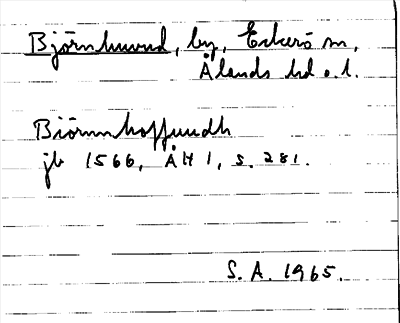 Björnhuvud, by, Eckerö sn,
Ålands hd o.l.
Biörnnhoffwudh
jb 1566, ÅH 1, s. 281.
S. A. 1965.